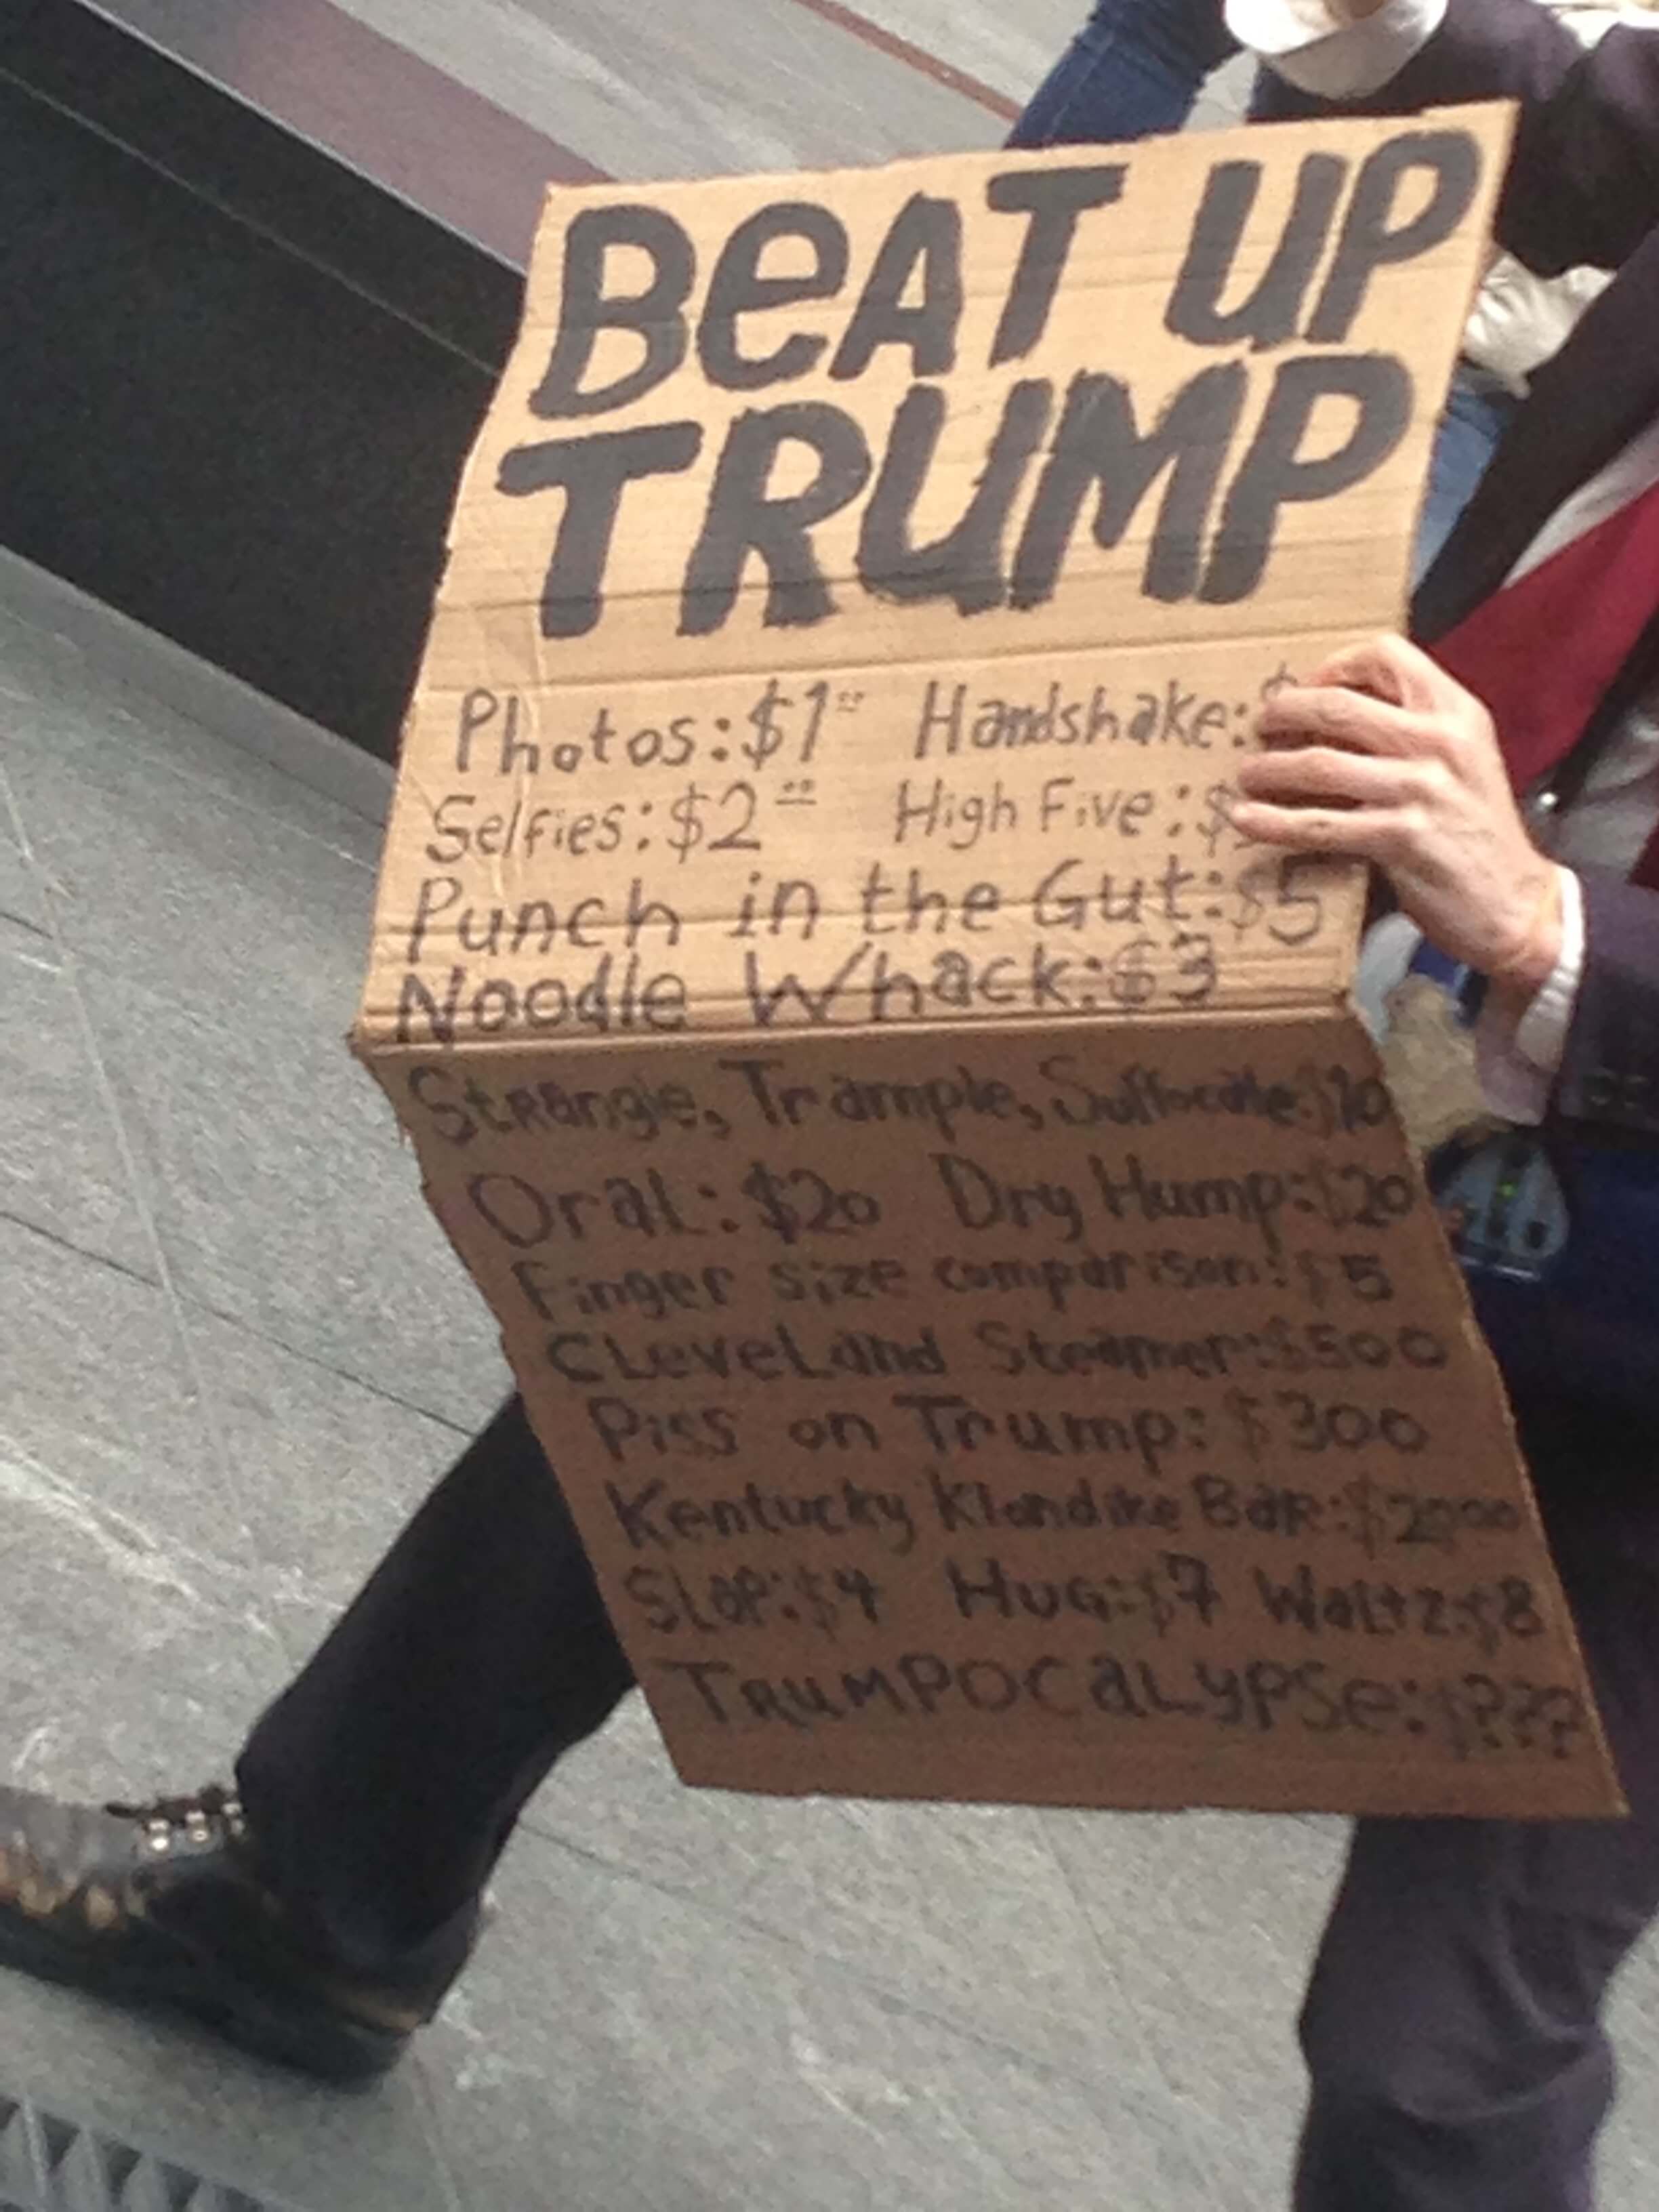 BeAT UP
TRUMP
Photos: $1.00 Handshake: $
Selfies: $2.00 High Five: $
Punch in the Gut: $5
Noodle Whack: $3
Strangle, Trample, Suffocate: $10
Oral: $20 Dry Hump: $20
Finger size comparison: $5
CLeveLand Steamer: $500
Piss on Trump: $300
Kentucky Klondike Bar:
SLap: $4 HUG: $7 Waltz: $8
TRUMPOCaLypse: $???